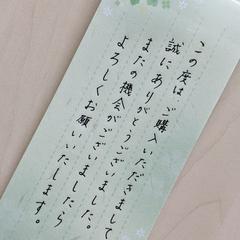 この度はご購入いただきまして
誠にありがとうございました。
またの機会がございましたら
よろしくお願いいたします。